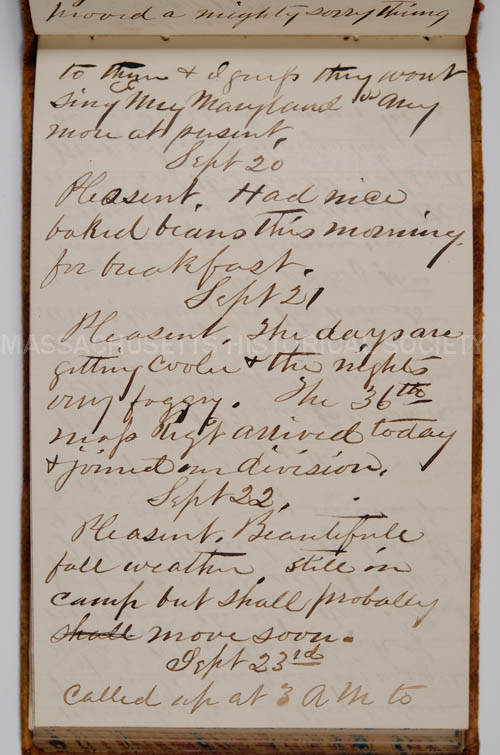 moved a mighty sorry thing
to them & I guess they wont
sing "My Maryland" any
more at present.
Sept 20
Pleasent. Had nice
baked beans this morning
for breakfast.
Sept 21
Pleasent. The days are
getting cooler & the nights
very foggy. The 36th
Mass Regt arrived today
& joined our division.
Sept 22.
Pleasent. Beautifull
fall weather, still in
camp but shall probally
shall move soon.
Sept 23rd
Called up at 3 A M to
MASSACHUSETTS HISTORICAL SOCIETY